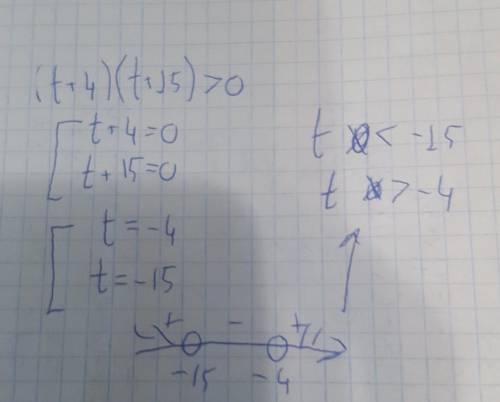 (t+4)(t+15)>0
t+4=0
t+15=0
t=-4
t=-15
+ - +
-15 -4
t < -15
t > -4